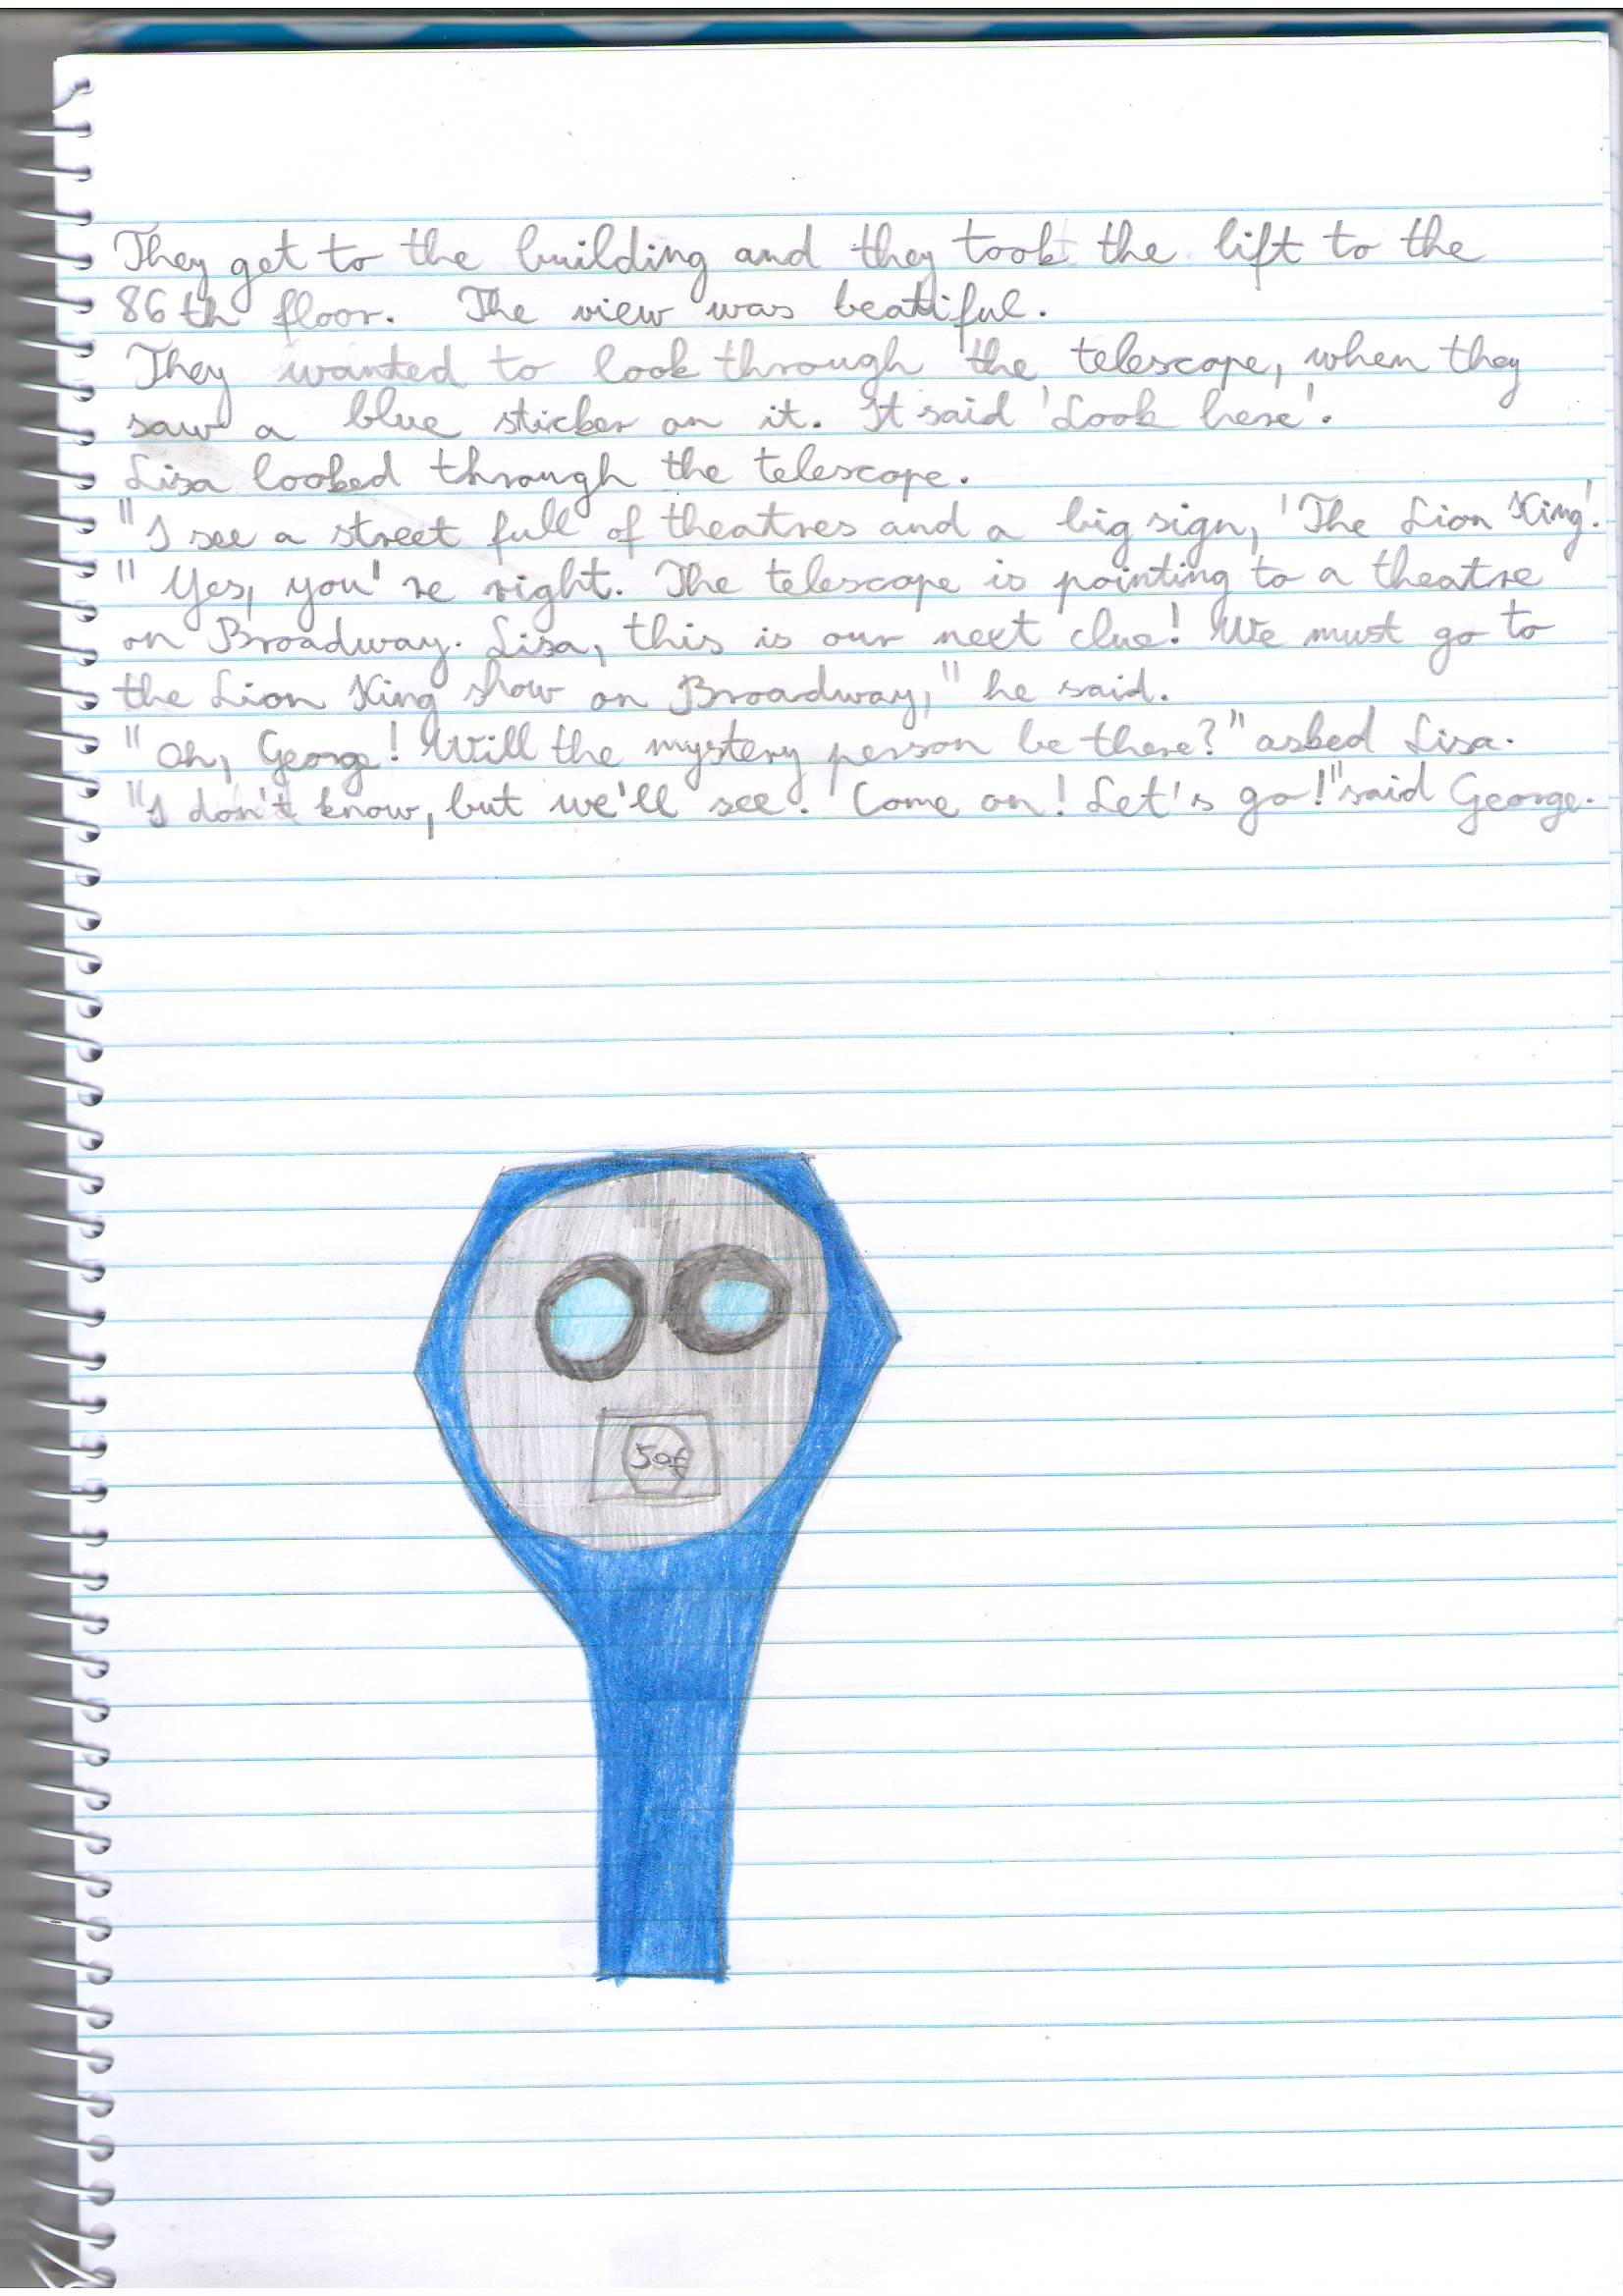 They get to the building and they took the lift to the
86th floor. The view was beatiful.
They wanted to look through the telescope, when they
saw a blue sticker on it. It said 'Look here'.
Lisa looked through the telescope.
"I see a street full of theatres and a big sign, 'The Lion King'.
" Yes, you're right. The telescope is pointing to a theatre
on Broadway. Lisa, this is our next clue! We must go to
the Lion King show on Broadway," he said.
"Oh, George! Will the mystery person be there?" asked Lisa.
"I don't know, but we'll see. Come on! Let's go!" said George.